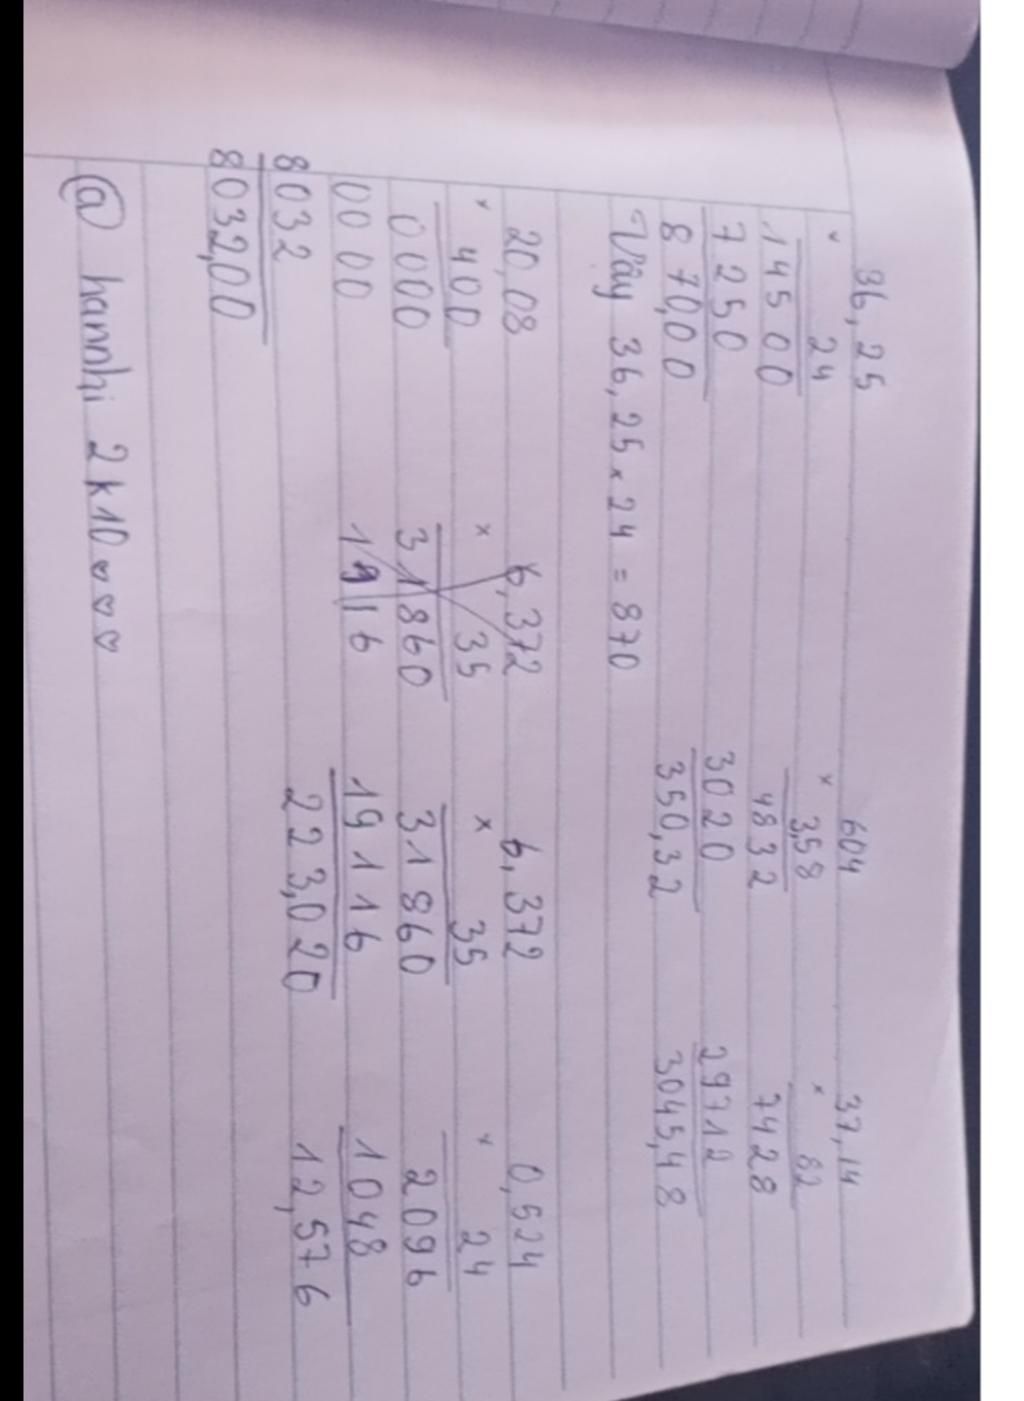 36,25 604 37,14
× 24 × 3,58 × 82
14500 4832 7428
7250 3020 29712
870,00 350,32 3045,48
Vậy 36,25 × 24 = 870
20,08 6,372 6,372 0,524
× 400 × 35 × 35 × 24
0000 31860 31860 2096
0000 1916 19116 1048
8032 223,020 12,576
8032,00
@ hannhi 2k10 ♡♡♡